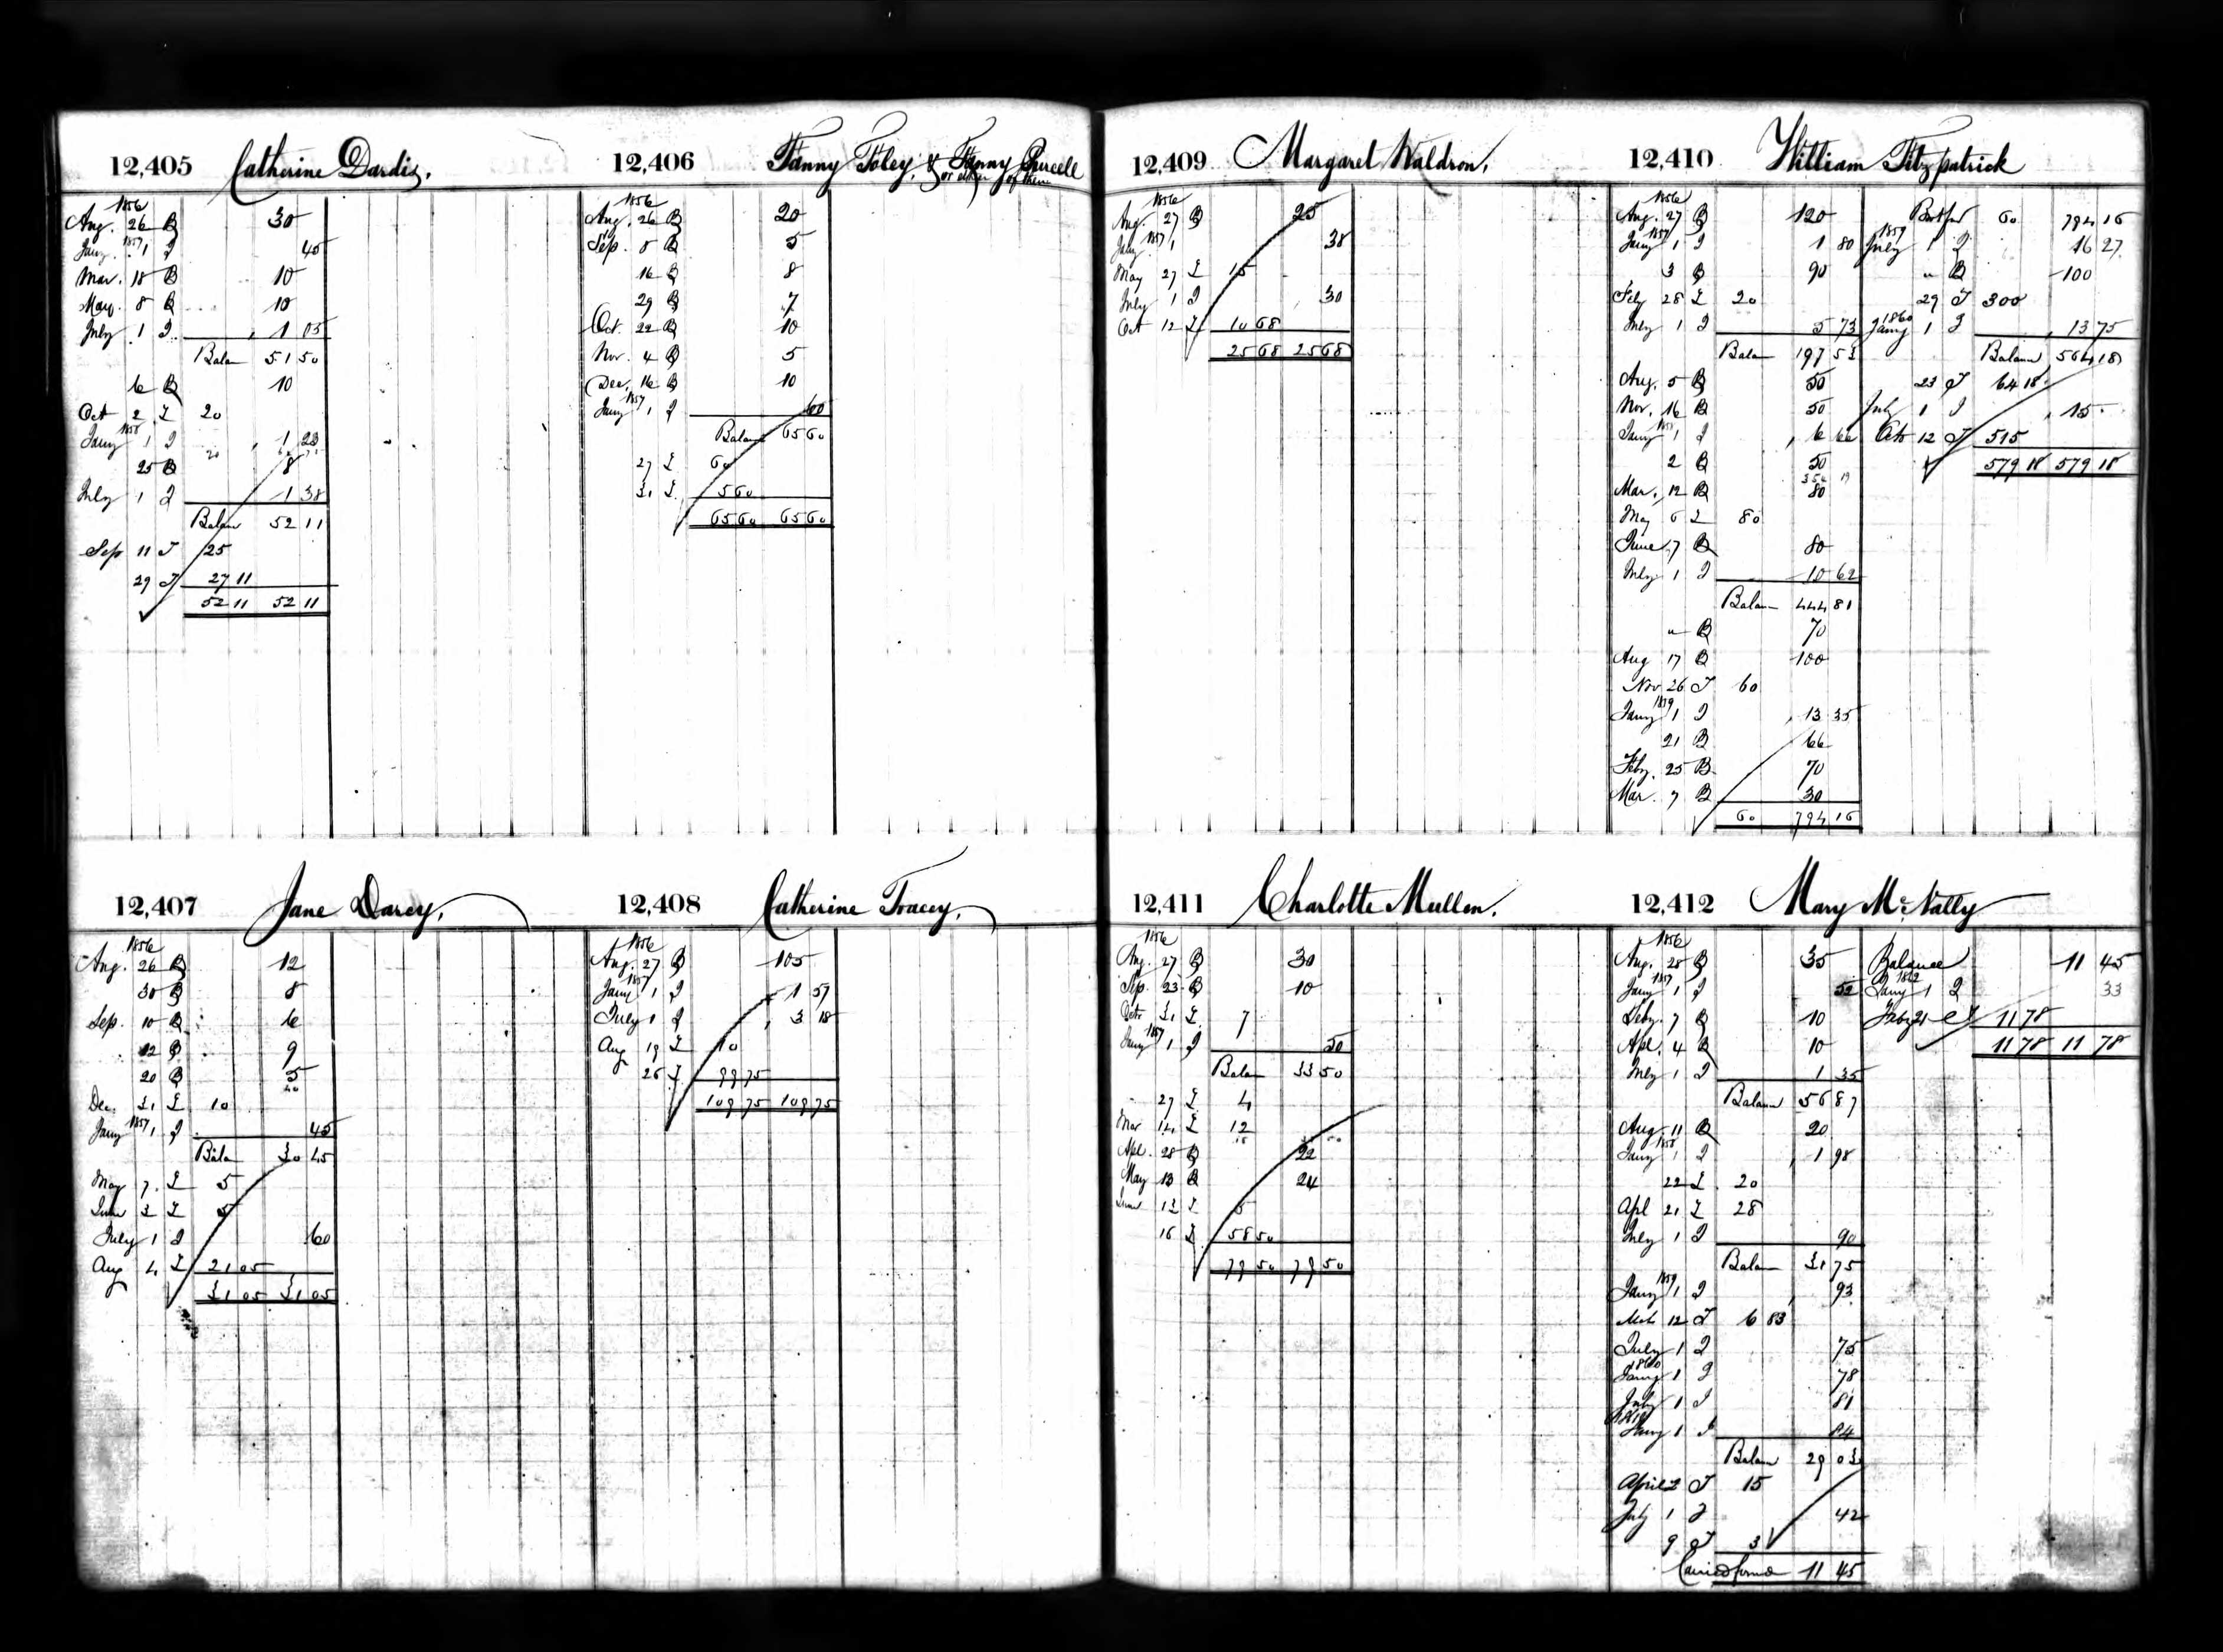 12,405 Catherine Dardis.
1856
Aug. 26 B 30
1857
Jany. 1 I 45
Mar. 18 B 10
May. 8 B 10
July 1 I 1 05
Balan 51 50
6 B 10
Oct 2 L 20
1858
Jany 1 I 1 23
25 B 8
July 1 I 1 38
Balan 52 11
Sep 11 T 25
29 T 27 11
52 11 52 11
12,406 Fanny Foley, & Fanny Purcell
or either of them
1856
Aug. 26 B 20
Sep. 8 B 5
16 B 8
29 B 7
Oct. 22 B 10
Nov. 4 B 5
Dec. 16 B 10
1857
Jany 1 I 60
Balan 65 60
27 L 60
31 L 5 60
65 60 65 60
12,407 Jane Darcy,
1856
Aug. 26 B 12
30 B 8
Sep. 10 B 6
12 B 9
20 B 5
40
Dec. 31 L 10
1857
Jany 1 I 45
Balan 30 45
May 7. L 5
June 3 L 5
July 1 I 60
Aug 4 L 21 05
31 05 31 05
12,408 Catherine Tracey,
1856
Aug. 27 B 105
1857
Jany 1 I 1 57
July 1 I 3 18
Aug 19 L 10
26 L 99 75
109 75 109 75
12,409 Margaret Waldron,
1856
Aug. 27 B 25
1857
Jany. 1 38
May 27 L 15
July 1 I 30
Oct 12 L 10 68
25 68 25 68
12,410 William Fitzpatrick
1856
Aug. 27 B 120
1857
Jany 1 I 1 80
3 B 90
Feby 28 L 20
July 1 I 5 73
Balan 197 53
Aug. 5 B 50
Nov. 16 B 50
1858
Jany 1 I 6 66
2 B 50
354 19
Mar. 12 B 80
May 6 L 80
June 7 B 80
July 1 I 10 62
Balan 444 81
" B 70
Aug 17 B 100
Nov 26 T 60
1859
Jany 1 I 13 35
21 B 66
Feby. 25 B 70
Mar. 7 B 30
60 794 16
Brot for 60 794 16
1859
July 1 I 16 27
" B 100
29 T 300
1860
Jany 1 I 13 75
Balance 564 18
23 T 64 18
July 1 I 15
Octr 12 T 515
579 18 579 18
12,411 Charlotte Mullen.
1856
Aug. 27 B 30
Sep. 23 B 10
Octr 31 L 7
1857
Jany 1 I 50
Balan 33 50
27 L 4
Mar 14 L 12
Apl. 28 B 22
May 13 B 24
June 12 L 5
16 L 58 50
79 50 79 50
12,412 Mary McNally
1856
Aug. 28 B 35
1857
Jany 1 I 52
Feby. 7 B 10
Apl. 4 B 10
July 1 I 1 35
Balan 56 87
Aug. 11 B 20
1858
Jany 1 I 1 98
22 L 20
Apl 21 L 28
July 1 I 90
Balan 31 75
1859
Jany 1 I 93
Mch 12 T 6 83
July 1 I 75
1860
Jany 1 I 78
July 1 I 81
1861
Jany 1 I 84
Balan 29 03
April 2 T 15
July 1 I 42
9 T 3
Carried forwd 11 45
Balance 11 45
1862
Jany 1 I 33
Feby 21 11 78
11 78 11 78